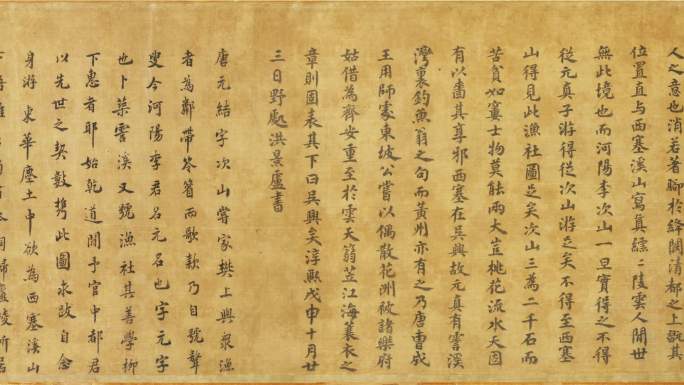 人之意也消若著脚於絳闕清都之上甑其
位置直与西塞溪山寫真繻二陵雲人間世
無此境也而河陽李次山一旦實得之不得
從元真子游得從次山游乏矣不得至西塞
山得見此漁社圖乏矣次山三為二千石而
苦貧如寠士物莫能兩大豈桃花流水天固
有以嗇其享邪西塞在吳興故元真有霅溪
灣裏釣魚翁之句而黃州亦有之乃唐曹成
王用師處東坡公嘗以偶散花洲被諸樂府
姑借為齊安重至於雲天篛笠江海蓑衣之
章則圖表其下曰吳興矣淳熙戊申十月廿
三日野處洪景盧書
唐元結字次山嘗家樊上與眾漁
者為鄰帶笭箵而歌欸乃自號聱
叟今河陽李君名元名也字元字
也卜築霅溪又號漁社其善學柳
下惠者耶始乾道間予官中都君
以先世之契數携此圖求詩自念
身游東華塵土中欲為西塞溪山